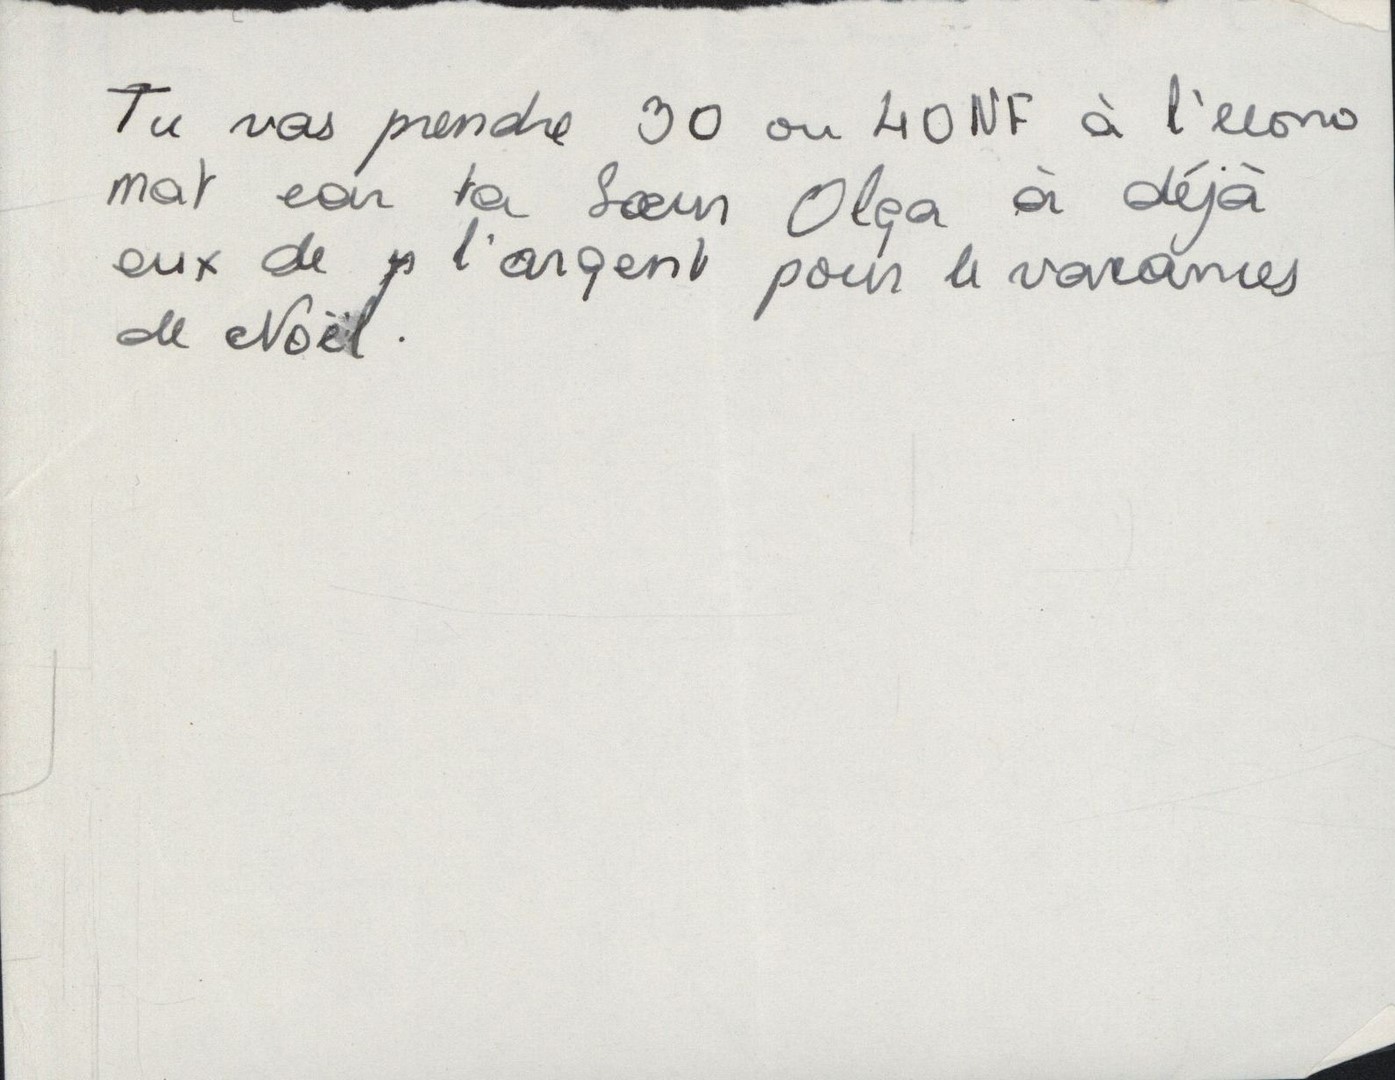 Tu vas prendre 30 ou 40 NF à l'écono
mat car ta Sœur Olga à déjà
eux de p l'argent pour le vacances
de Noël.